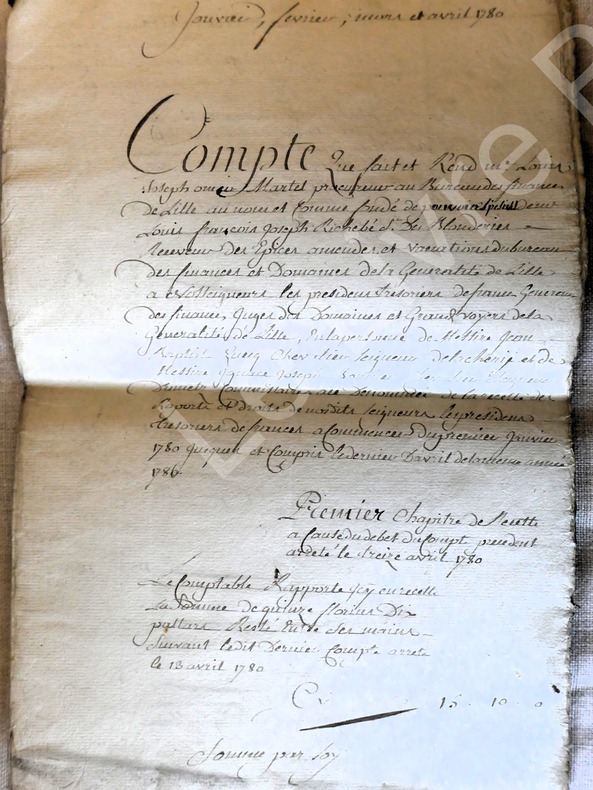 Janvier, fevrier, mars et avril 1780
Compte Que fait et Rend Mre Louis
Joseph Martel procureur au Bureau des finances
de Lille au nom et Comme fondé de pouvoir
Louis françois Joseph Richebé Sr. Des Blonderies
Receveur des Epices amendes et vacations du bureau
des finances et Domaines de la Generalité de Lille
a Nosseigneurs les presidens tresoriers de france Generaux
des finances, Juges des Domaines et Grands voyers de la
Generalité de Lille, En la personne de Messire Jean
Baptiste Seigneur et de
Messire Joseph
Commissaires de la recette des
Raports et Droits de nosdits seigneurs les presidens
tresoriers de france a Commencer du premier Janvier
1780 Jusques et Compris le dernier D'avril de la meme année
1780.
Premier Chapitre de Recette
a Cause du debet du Compte precedent
arreté le treize avril 1780
Le Comptable Rapporte Icy en recette
La Somme de quinze florins Dix
pattars Resté Entre Ses mains
Suivant ledit Dernier Compte arreté
le 13 avril 1780
Cy 15 10 0
Somme par soy